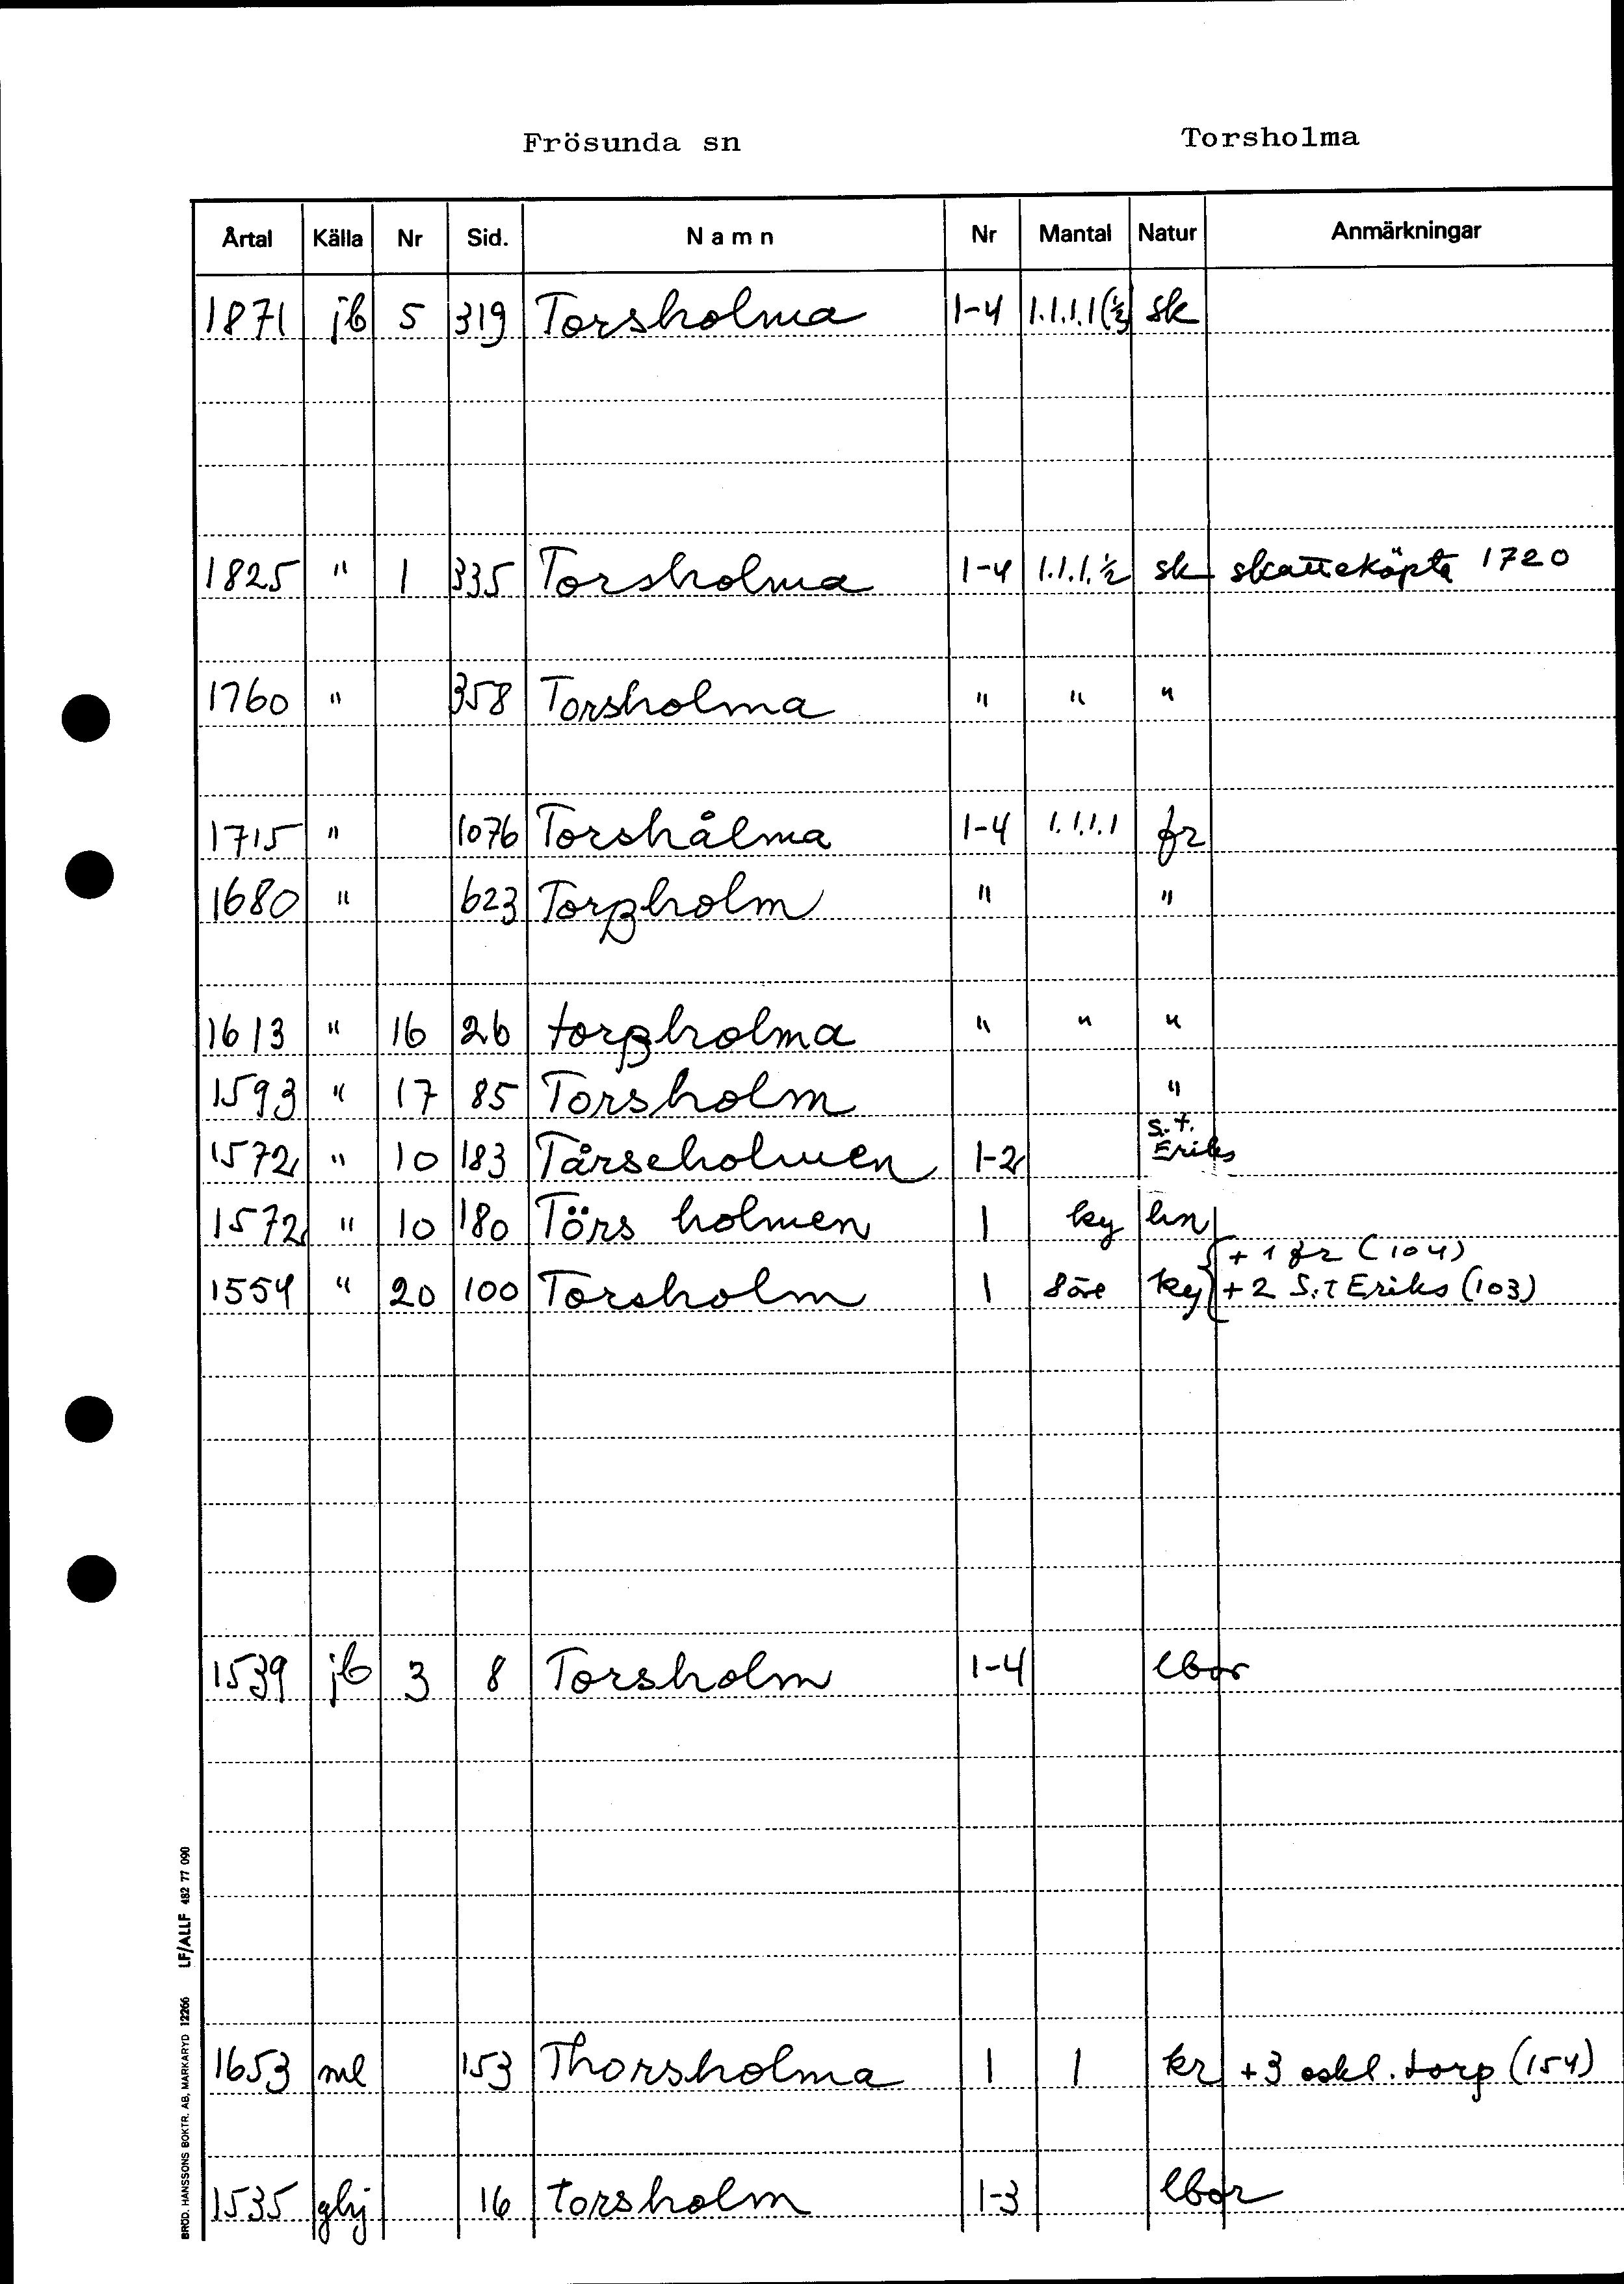 Frösunda sn Torsholma
Årtal Källa Nr Sid. Namn Nr Mantal Natur Anmärkningar
1871 jb 5 319 Torsholma 1-4 1.1.1.1(½) sk
1825 " 1 335 Torsholma 1-4 1.1.1.½ sk skatteköpta 1720
1760 " 358 Torsholma " " "
1715 " 1076 Torshålma 1-4 1.1.1.1 fr
1680 " 623 Torßholm " "
1613 " 16 26 torßholma " " "
1593 " 17 85 Torsholm "
1572 " 10 183 Tårseholmen 1-2 S:t Eriks
1572 " 10 180 Törs holmen 1 ky hn
+ 1 fr (104)
1554 " 20 100 Torsholm 1 8 öre ky + 2 S:t Eriks (103)
1539 jb 3 8 Torsholm 1-4 lbor
1653 ml 153 Thorsholma 1 1 kr +3 oskl. torp (154)
1535 ghj 16 torsholm 1-3 lbor
BRÖD. HANSSONS BOKTR. AB, MARKARYD 12266 LF/ALLF 482 77 090